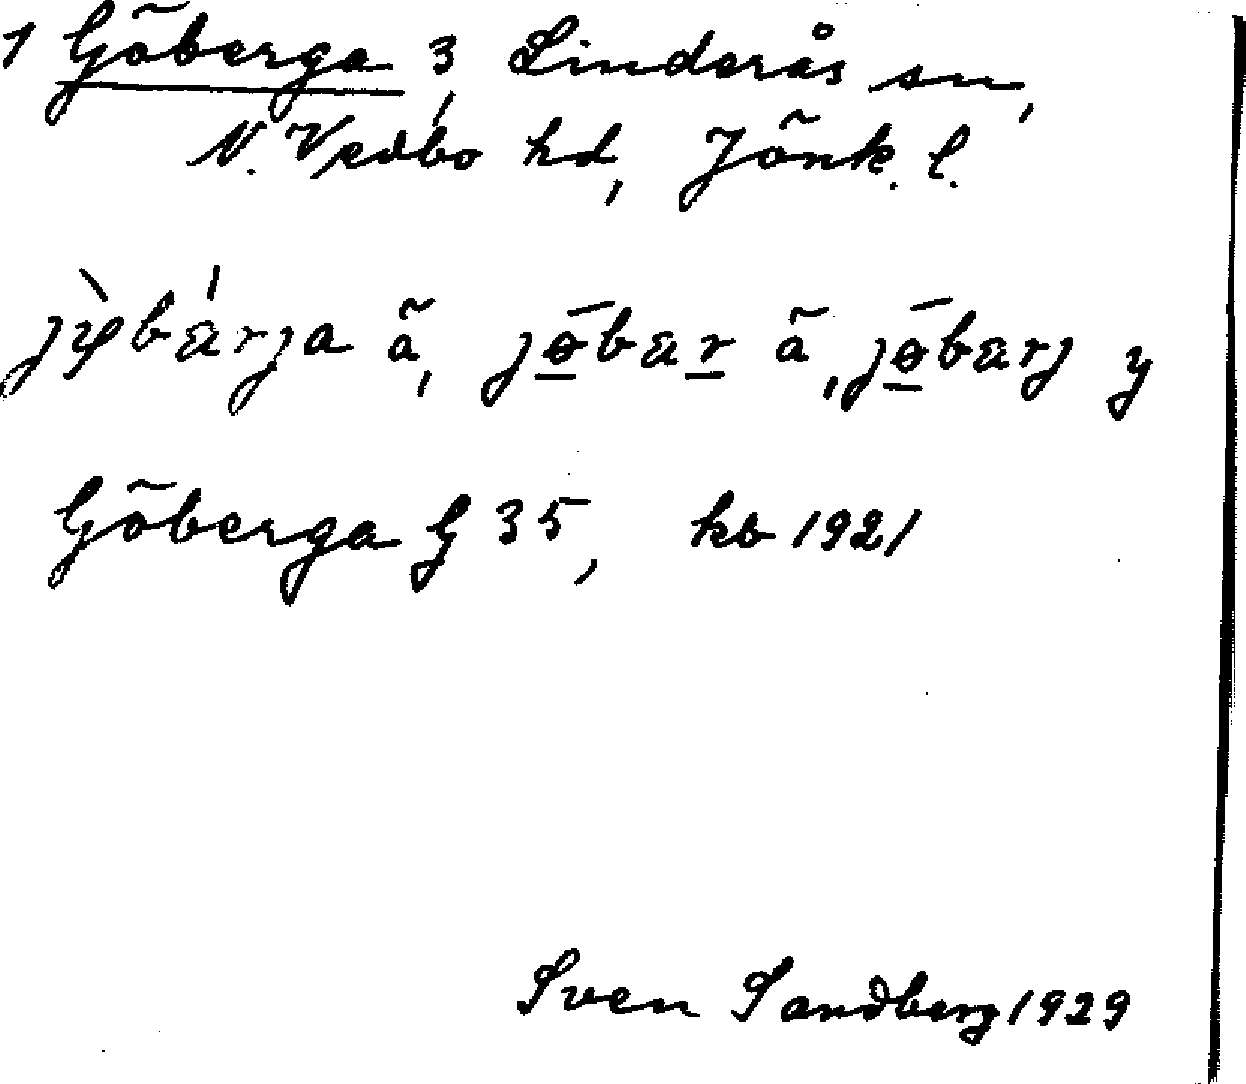 1 Göberga 3, Linderås sn,
N. Vedbo hd, Jönk. l.
jø̀bárja ä, jø̄bar ä, jø̄barj y
Göberga G 35, kb 1921
Sven Sandberg 1929